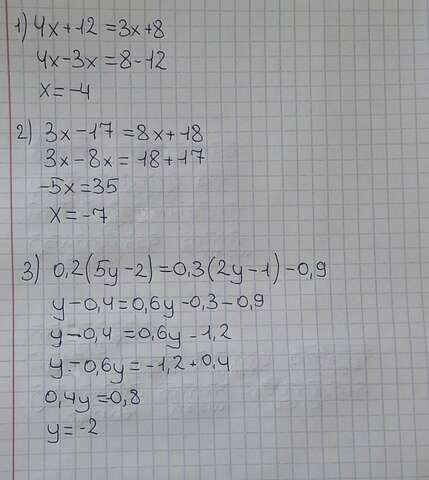 1) 4x+12=3x+8
4x-3x=8-12
x=-4
2) 3x-17=8x+18
3x-8x=18+17
-5x=35
x=-7
3) 0,2(5y-2)=0,3(2y-1)-0,9
y-0,4=0,6y-0,3-0,9
y-0,4=0,6y-1,2
y-0,6y=-1,2+0,4
0,4y=0,8
y=-2